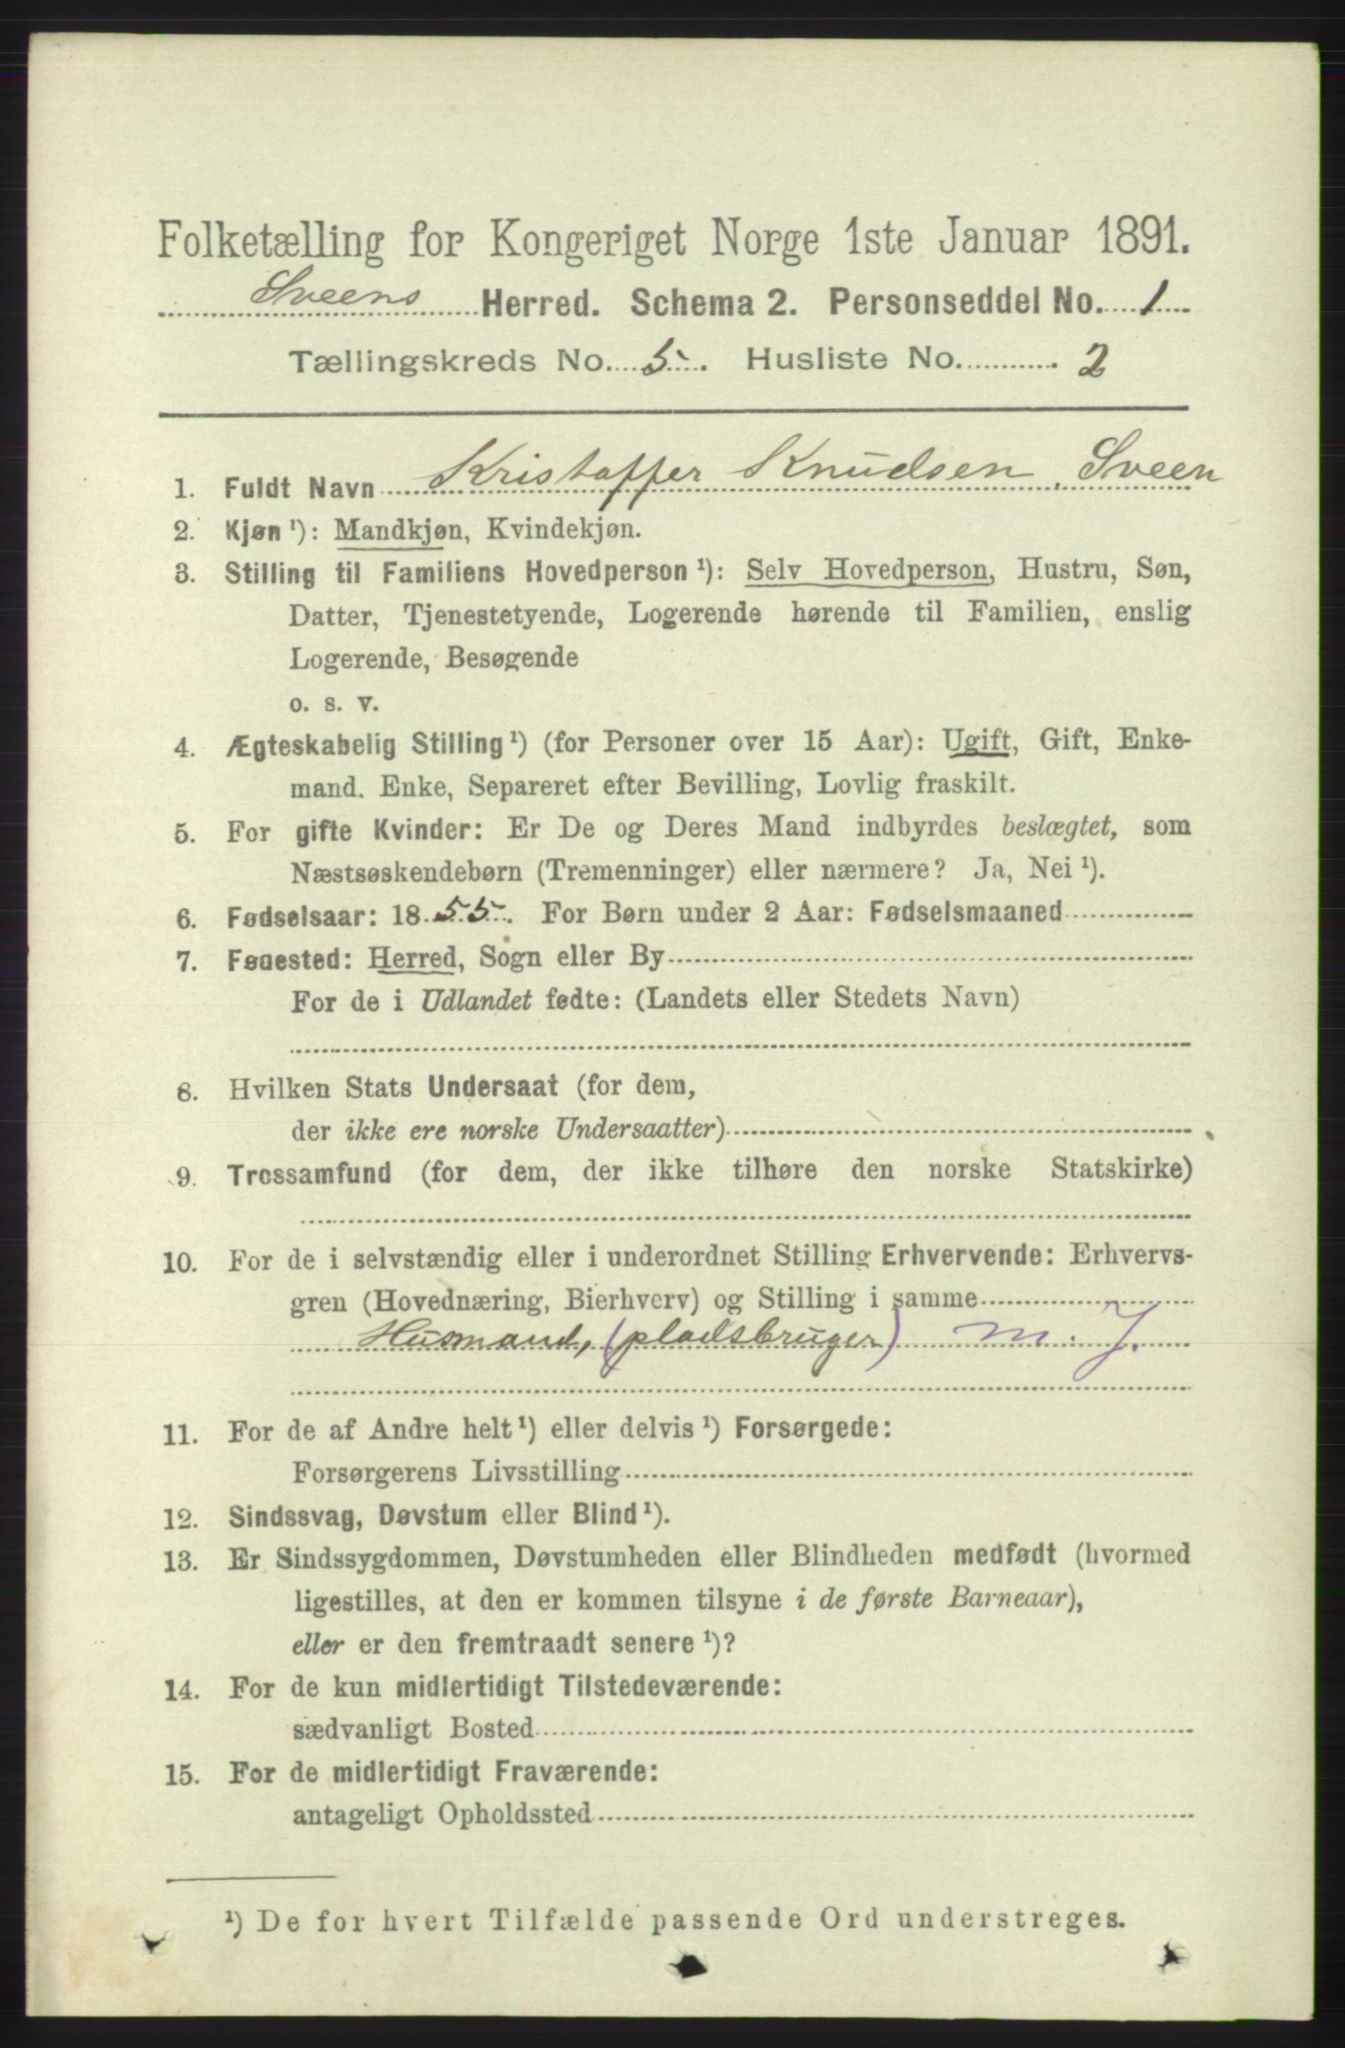 Folketælling for Kongeriget Norge 1ste Januar 1891.
Sveens Herred. Schema 2. Personseddel No. 1
Tællingskreds No. 5. Husliste No. 2
1. Fuldt Navn Kristoffer Knudsen, Sveen
2. Kjøn ¹): Mandkjøn, Kvindekjøn.
3. Stilling til Familiens Hovedperson ¹): Selv Hovedperson, Hustru, Søn,
Datter, Tjenestetyende, Logerende hørende til Familien, enslig
Logerende, Besøgende
o. s. v.
4. Ægteskabelig Stilling ¹) (for Personer over 15 Aar): Ugift, Gift, Enke-
mand. Enke, Separeret efter Bevilling, Lovlig fraskilt.
5. For gifte Kvinder: Er De og Deres Mand indbyrdes beslægtet, som
Næstsøskendebørn (Tremenninger) eller nærmere? Ja, Nei ¹).
6. Fødselsaar: 1855. For Børn under 2 Aar: Fødselsmaaned
7. Fødested: Herred, Sogn eller By
For de i Udlandet fødte: (Landets eller Stedets Navn)
8. Hvilken Stats Undersaat (for dem,
der ikke ere norske Undersaatter)
9. Trossamfund (for dem, der ikke tilhøre den norske Statskirke)
10. For de i selvstændig eller i underordnet Stilling Erhvervende: Erhvervs-
gren (Hovednæring, Bierhverv) og Stilling i samme
Husmand, (pladsbruger) m. J.
11. For de af Andre helt ¹) eller delvis ¹) Forsørgede:
Forsørgerens Livsstilling
12. Sindssvag, Døvstum eller Blind ¹).
13. Er Sindssygdommen, Døvstumheden eller Blindheden medfødt (hvormed
ligestilles, at den er kommen tilsyne i de første Barneaar),
eller er den fremtraadt senere ¹)?
14. For de kun midlertidigt Tilstedeværende:
sædvanligt Bosted
15. For de midlertidigt Fraværende:
antageligt Opholdssted
¹) De for hvert Tilfælde passende Ord understreges.